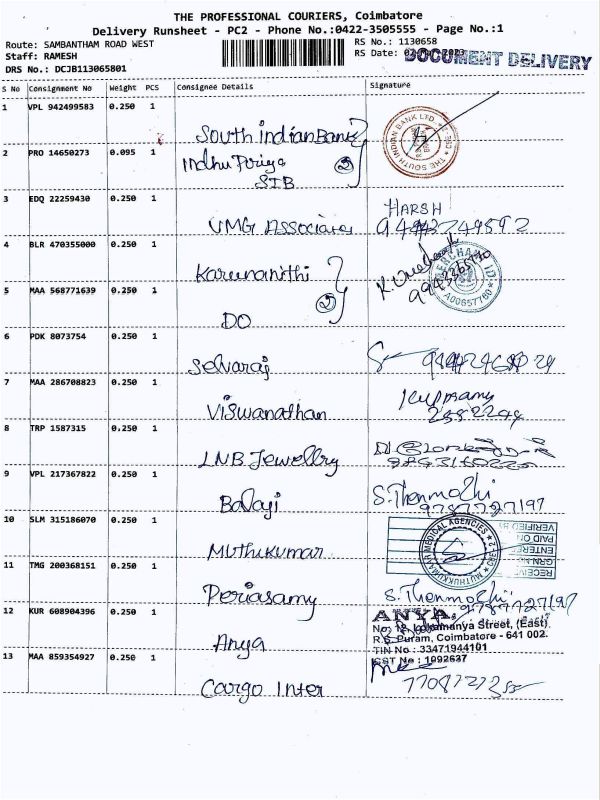 THE PROFESSIONAL COURIERS, Coimbatore
Delivery Runsheet - PC2 - Phone No.:0422-3505555 - Page No.:1
Route: SAMBANTHAM ROAD WEST
RS No.: 1130658
Staff: RAMESH
RS Date:
DOCUMENT DELIVERY
DRS No.: DCJB113065801
S No Consignment No Weight PCS Consignee Details Signature
1 VPL 942499583 0.250 1
South Indian Bank
THE SOUTH INDIAN BANK LTD.
2 PRO 14650273 0.095 1
Indhu Periya
SIB
2
3 EDQ 22259430 0.250 1
VMG Associates
HARSH
4 BLR 470355000 0.250 1
Karunanithi
MERCHANT ID
A00657760
5 MAA 568771639 0.250 1
DO
2
6 PDK 8073754 0.250 1
Selvaraj
7 MAA 286708823 0.250 1
Viswanathan
Kuppsamy
8 TRP 1587315 0.250 1
LNB Jewellry
9 VPL 217367822 0.250 1
Balaji
S. Thenmozhi
9787727197
10 SLM 315186070 0.250 1
Muthukumar
MUTHUKUMAR MEDICAL AGENCIES
VERIFIED BY
PAID ON
ENTERED
GRN No
RECEIVE
11 TMG 200368151 0.250 1
Periasamy
S. Thenmozhi
9787727197
12 KUR 608904396 0.250 1
Anya
ANYA,
Street, (East)
R.S. Puram, Coimbatore - 641 002.
TIN No : 33471944101
CST No : 1092637
13 MAA 859354927 0.250 1
Cargo Inter